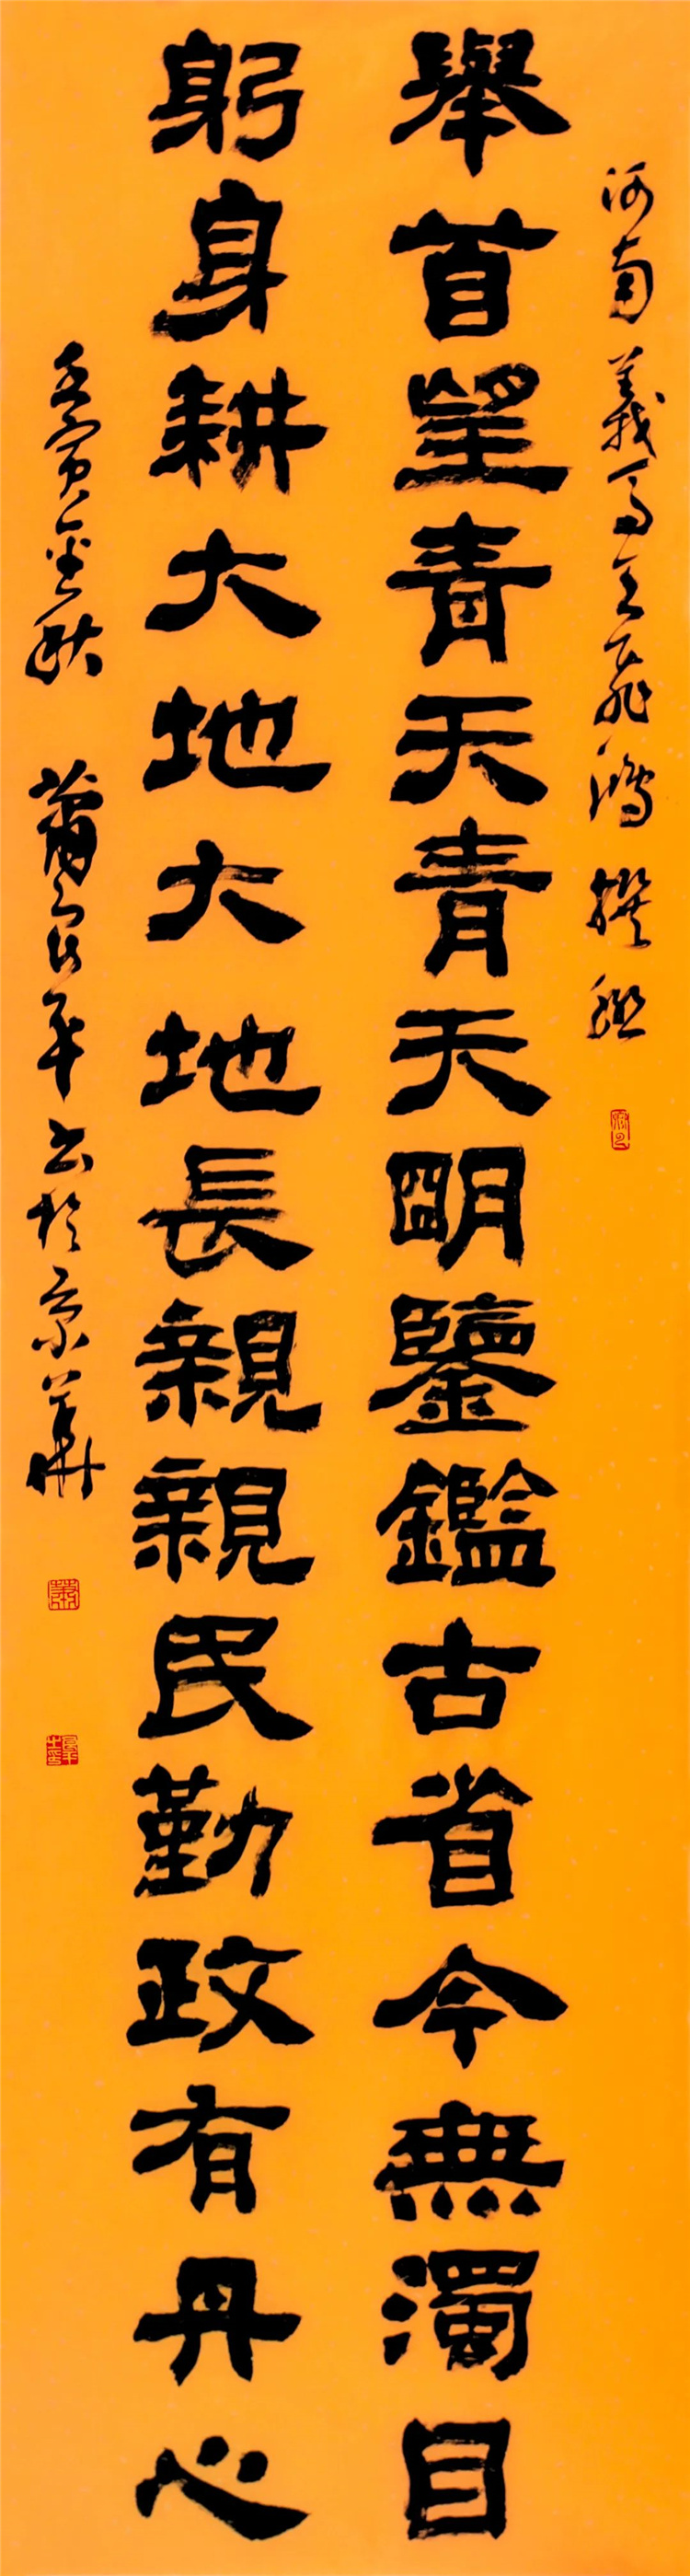 河南義馬王飛鴻撰聯
舉首望青天青天明鑒鑑古省今無濁目
躬身耕大地大地長親親民勤政有丹心
壬寅金秋 蕭平書於京華